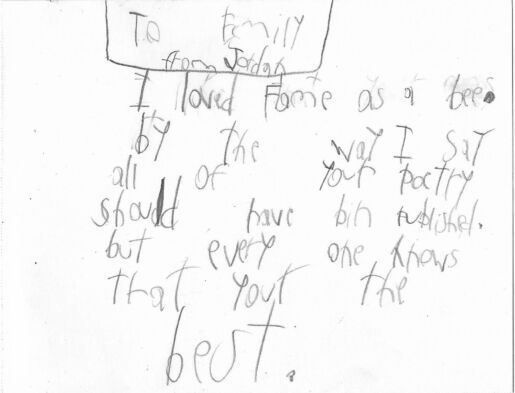 To Emily
from Jordan
I loved Fame as a bee.
by the way I say
all of your poetry
should have bin published.
but every one knows
that your the
best.